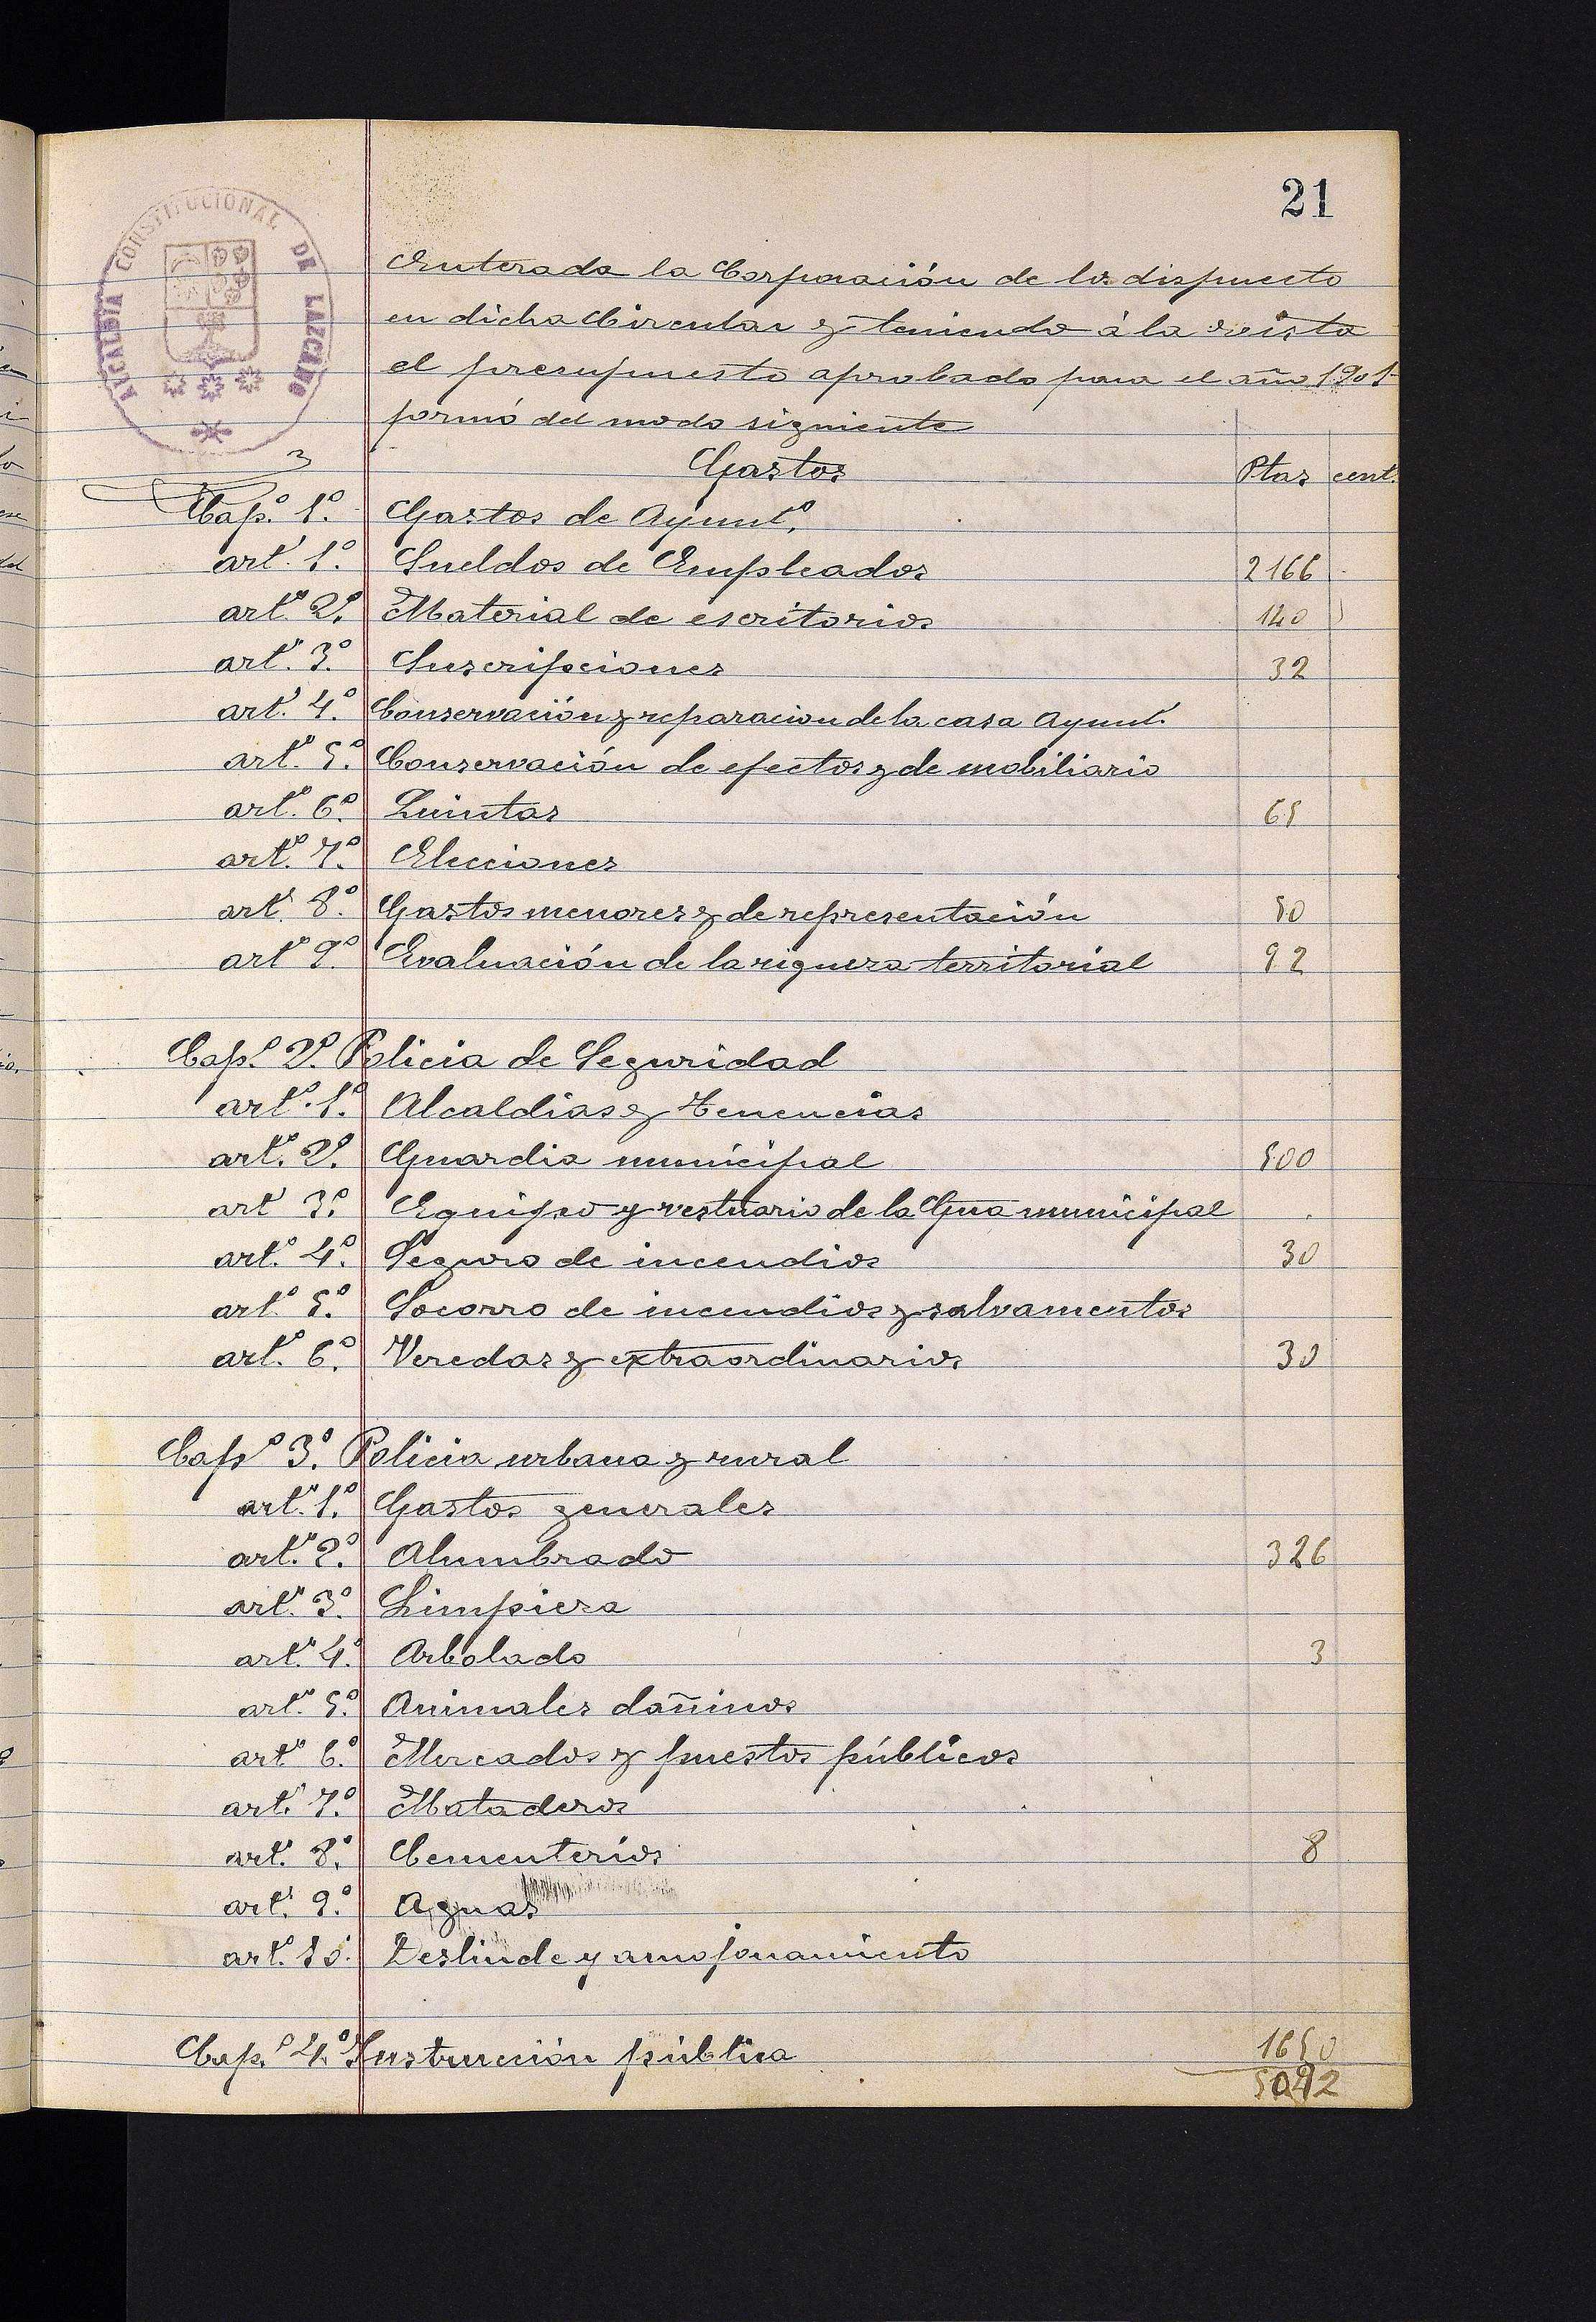 21
ALCALDIA CONSTITUCIONAL DE LAZCANO
Enterada la Corporación de lo dispuesto
en dicha Circular y teniendo á la vista
el presupuesto aprobado para el año 1901
formó del modo siguiente
Gastos Ptas cent.
Cap.º 1.º Gastos de Ayunt.º
art.º 1.º Sueldos de Empleados 2166
art.º 2.º Material de escritorios 140
art.º 3.º Suscripciones 32
art.º 4.º Conservación y reparacion de la casa Ayunt.º
art.º 5.º Conservación de efectos y de mobiliario
art.º 6.º Quintas 65
art.º 7.º Elecciones
art.º 8.º Gastos menores y de representación 50
art.º 9.º Evaluación de la riqueza territorial 92
Cap.º 2.º Policia de Seguridad
art.º 1.º Alcaldias y Tenencias
art.º 2.º Guardia municipal 500
art.º 3.º Equipo y vestuario de la Gua municipal
art.º 4.º Seguro de incendios 30
art.º 5.º Socorro de incendios y salvamentos
art.º 6.º Veredas y extraordinarios 30
Cap.º 3.º Policia urbana y rural
art.º 1.º Gastos generales
art.º 2.º Alumbrado 326
art.º 3.º Limpieza
art.º 4.º Arbolado 3
art.º 5.º Animales dañinos
art.º 6.º Mercados y puestos públicos
art.º 7.º Mataderos
art.º 8.º Cementerios 8
art.º 9.º Aguas
art.º 10.º Deslinde y amojonamiento
Cap.º 4.º Instrucción pública 1650
5092